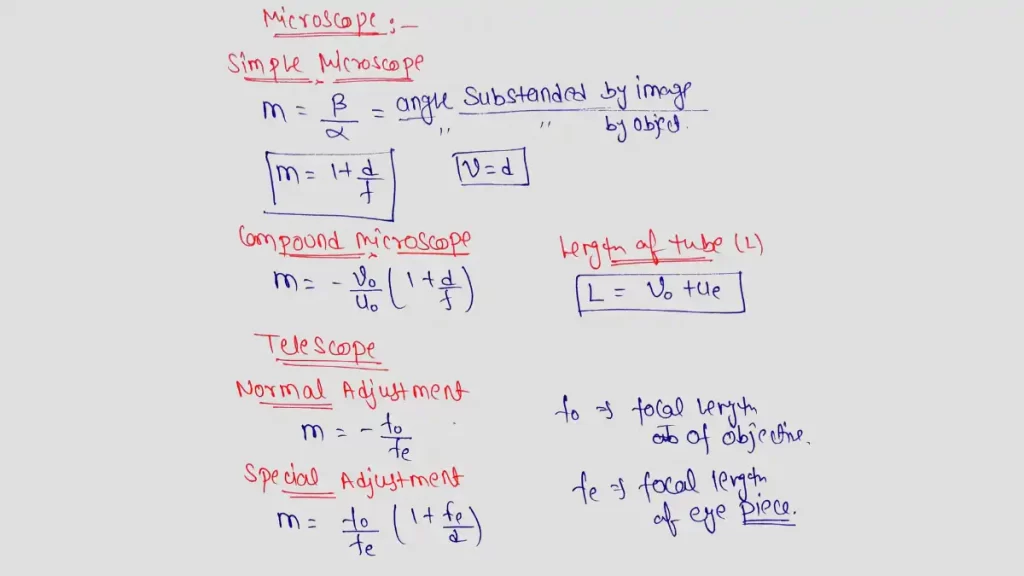 Microscope :-
Simple Microscope
m = β/α = angle Substanded by image / " " by object.
m = 1+ d/f
v = d
Compound microscope
m = - v₀/u₀ (1 + d/f)
Length of tube (L)
L = v₀ + ue
Telescope
Normal Adjustment
m = - fo/fe
fo ⇒ focal length
of objective.
Special Adjustment
m = fo/fe (1 + fe/d)
fe ⇒ focal length
of eye piece.